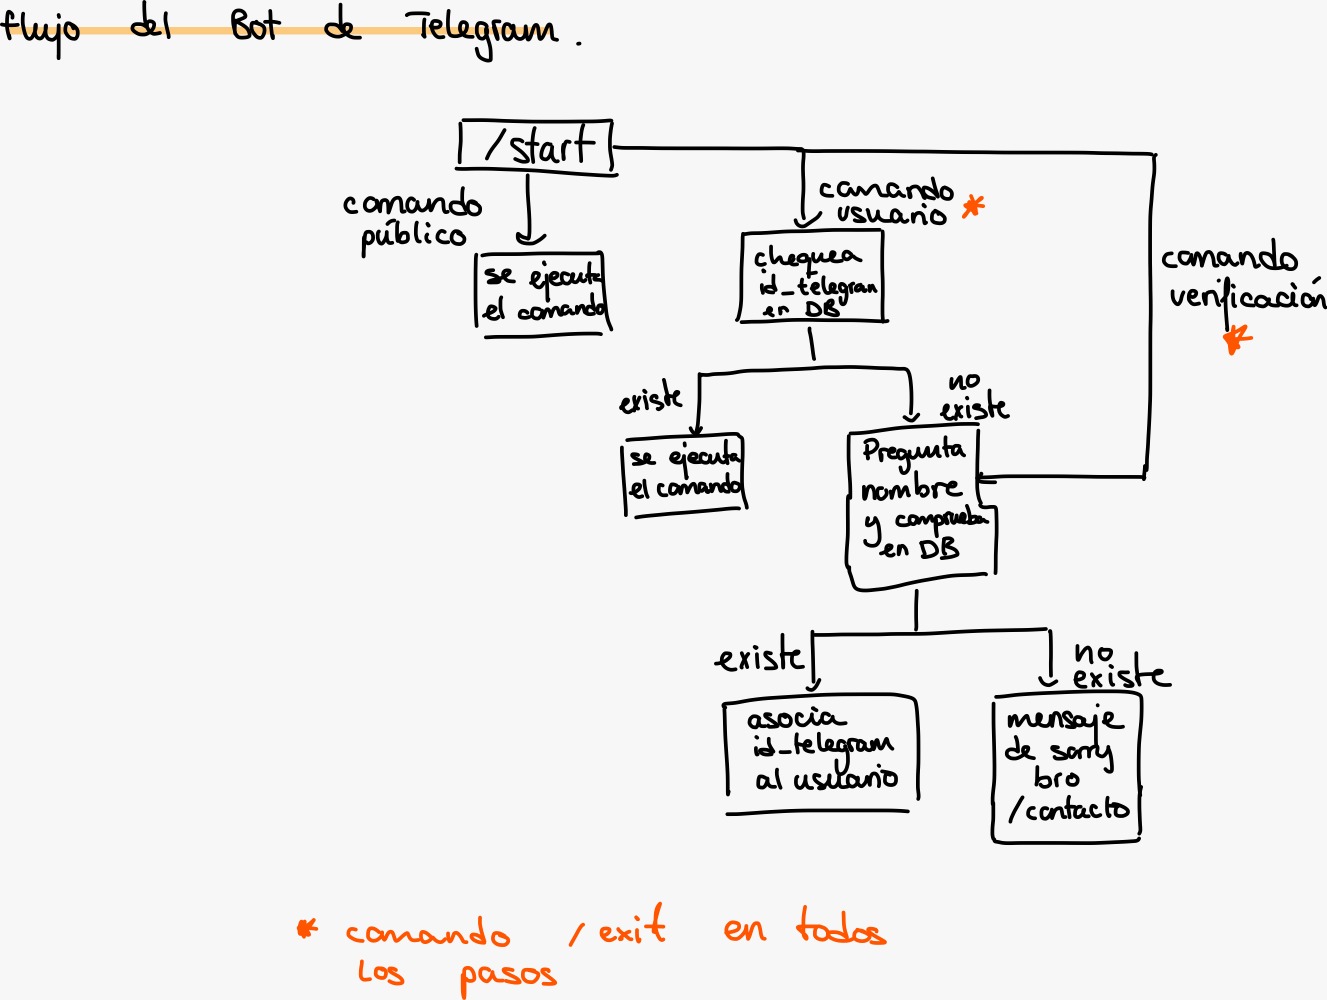 flujo del Bot de Telegram.
/start
comando
público
se ejecuta
el comando
comando
usuario *
chequea
id_telegram
en DB
comando
verificación
*
existe
se ejecuta
el comando
no
existe
Pregunta
nombre
y comprueba
en DB
existe
asocia
id_telegram
al usuario
no
existe
mensaje
de sorry
bro
/contacto
* comando /exit en todos
los pasos